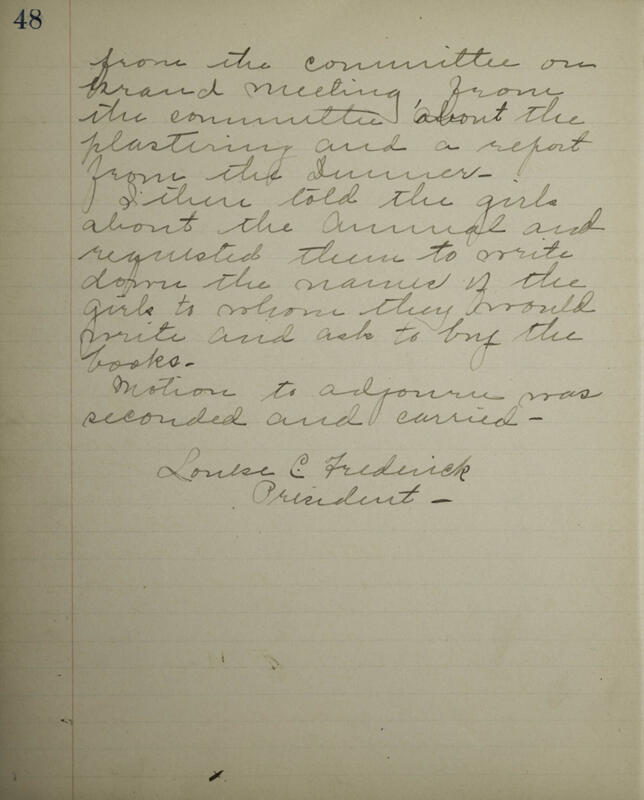 48
from the committee on
Grand Meeting, from
the committee about the
plastering and a report
from the Dinner -
I then told the girls
about the Annual and
requested them to write
down the names of the
girls to whom they would
write and ask to buy the
books -
Motion to adjourn was
seconded and carried -
Louise C. Frederick
President -